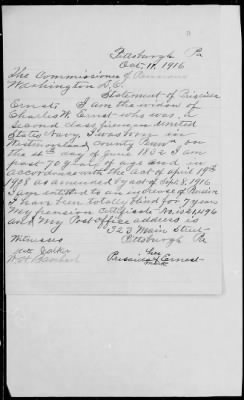 Pittsburgh Pa
Oct, 11, 1916
The Commissioner of Pensions
Washington D.C.
Statement of Priscilla
Ernest. I am the widow of
Charles W. Ernest who was a
Second class fireman United
States Navy. I was born in
Westmoreland County Penna on
the 4th day of June 1832 I am
past 70 years of age and in
accordance with the Act of April 19th
1908 as amended by act of Sept 8, 1916
I am entitled to an increase of Pension
I have been totally blind for 7 years
My pension Certificate No is
and my Post office address is
323 Main Street
Pittsburgh Pa
Witnesses
her
Priscilla Ernest
mark